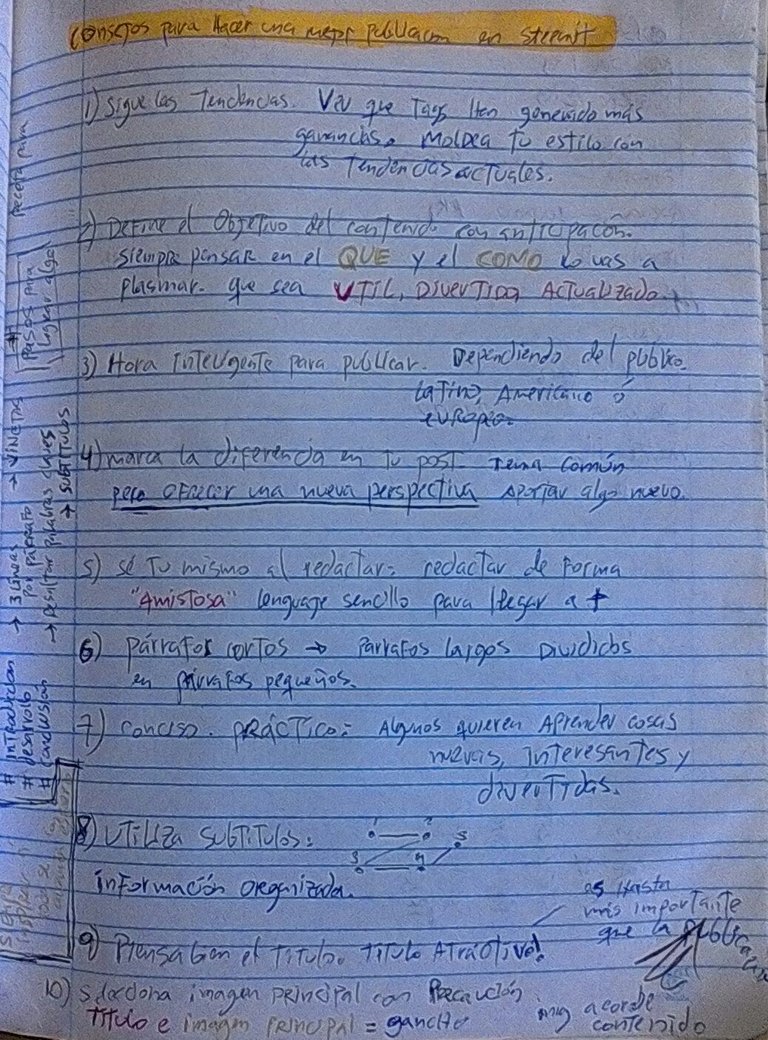 Consejos para Hacer una mejor publicación en steemit
1) Sigue las Tendencias. Ver que Tags Han generado más
ganancias. Moldea tu estilo con
las Tendencias actuales.
2) Define el Objetivo del contenido con anticipación.
Siempre pensar en el QUE y el COMO lo vas a
plasmar. que sea UTIL, Divertido Actualizado.
3) Hora Inteligente para publicar. Dependiendo del público.
Latino, Americano ó
europeo.
4) marca la diferencia en tu post. Tema común
pero ofrecer una nueva perspectiva Aportar algo nuevo.
5) sé Tu mismo al redactar: redactar de forma
"Amistosa" lenguaje sencillo para llegar a +
6) párrafos cortos → Párrafos largos Divididos
en párrafos pequeños.
7) conciso. PRÁCTICO: Algunos quieren Aprender cosas
nuevas, interesantes y
divertidas.
8) UTILIZA SUBTITULOS:
1 2 3 4 5
información organizada.
9) Piensa bien el Titulo. Titulo Atractivo!
es Hasta
más importante
que la publicación
10) Selecciona imagen principal con Precaución.
Titulo e imagen principal = gancho
muy acorde
contenido
# introducción
# desarrollo
# conclusión
→ 3 líneas
por párrafo
→ Resaltar palabras claves
→ VIÑETAS
→ SUBTITULOS
# Pasos para
lograr algo
Receta para
Siempre